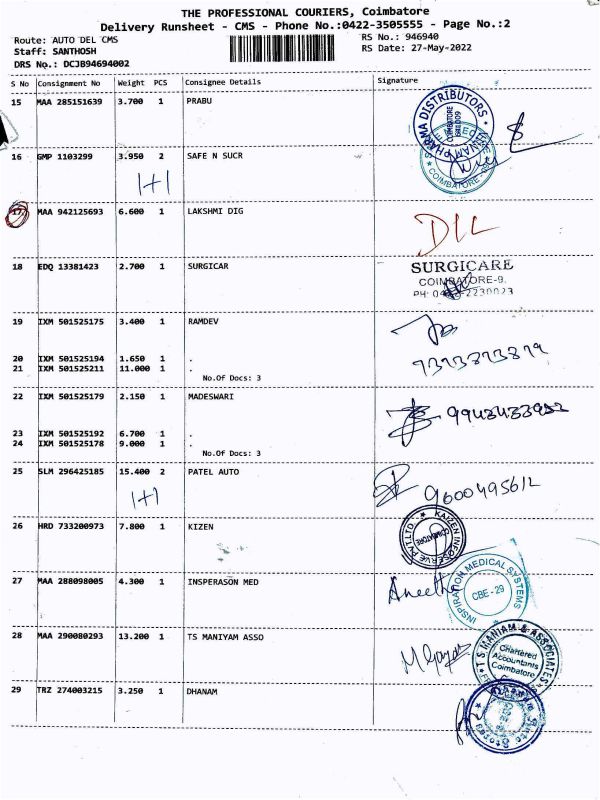 THE PROFESSIONAL COURIERS, Coimbatore
Delivery Runsheet - CMS - Phone No.:0422-3505555 - Page No.:2
Route: AUTO DEL CMS RS No.: 946940
Staff: SANTHOSH RS Date: 27-May-2022
DRS No.: DCJB94694002
S No Consignment No Weight PCS Consignee Details Signature
15 MAA 285151639 3.700 1 PRABU
PHARMA DISTRIBUTORS
COIMBATORE
16 GMP 1103299 3.950 2 SAFE N SUCR
COIMBATORE
1+1
17 MAA 942125693 6.600 1 LAKSHMI DIG
DIL
18 EDQ 13381423 2.700 1 SURGICAR
SURGICARE
COIMBATORE-9.
PH: 0422-2230023
19 IXM 501525175 3.400 1 RAMDEV
20 IXM 501525194 1.650 1 .
21 IXM 501525211 11.000 1 .
No.Of Docs: 3
22 IXM 501525179 2.150 1 MADESWARI
23 IXM 501525192 6.700 1 .
24 IXM 501525178 9.000 1 .
No.Of Docs: 3
25 SLM 296425185 15.400 2 PATEL AUTO
1+1
9600495612
26 HRD 733200973 7.800 1 KIZEN
KAIZEN INFOSERVE PVT.LTD.
COIMBATORE
27 MAA 288098005 4.300 1 INSPERASON MED
Aneetha
INSPIRATION MEDICAL SYSTEMS
CBE - 29
28 MAA 290080293 13.200 1 TS MANIYAM ASSO
T S MANIAM & ASSOCIATES
Chartered
Accountants
Coimbatore
29 TRZ 274003215 3.250 1 DHANAM